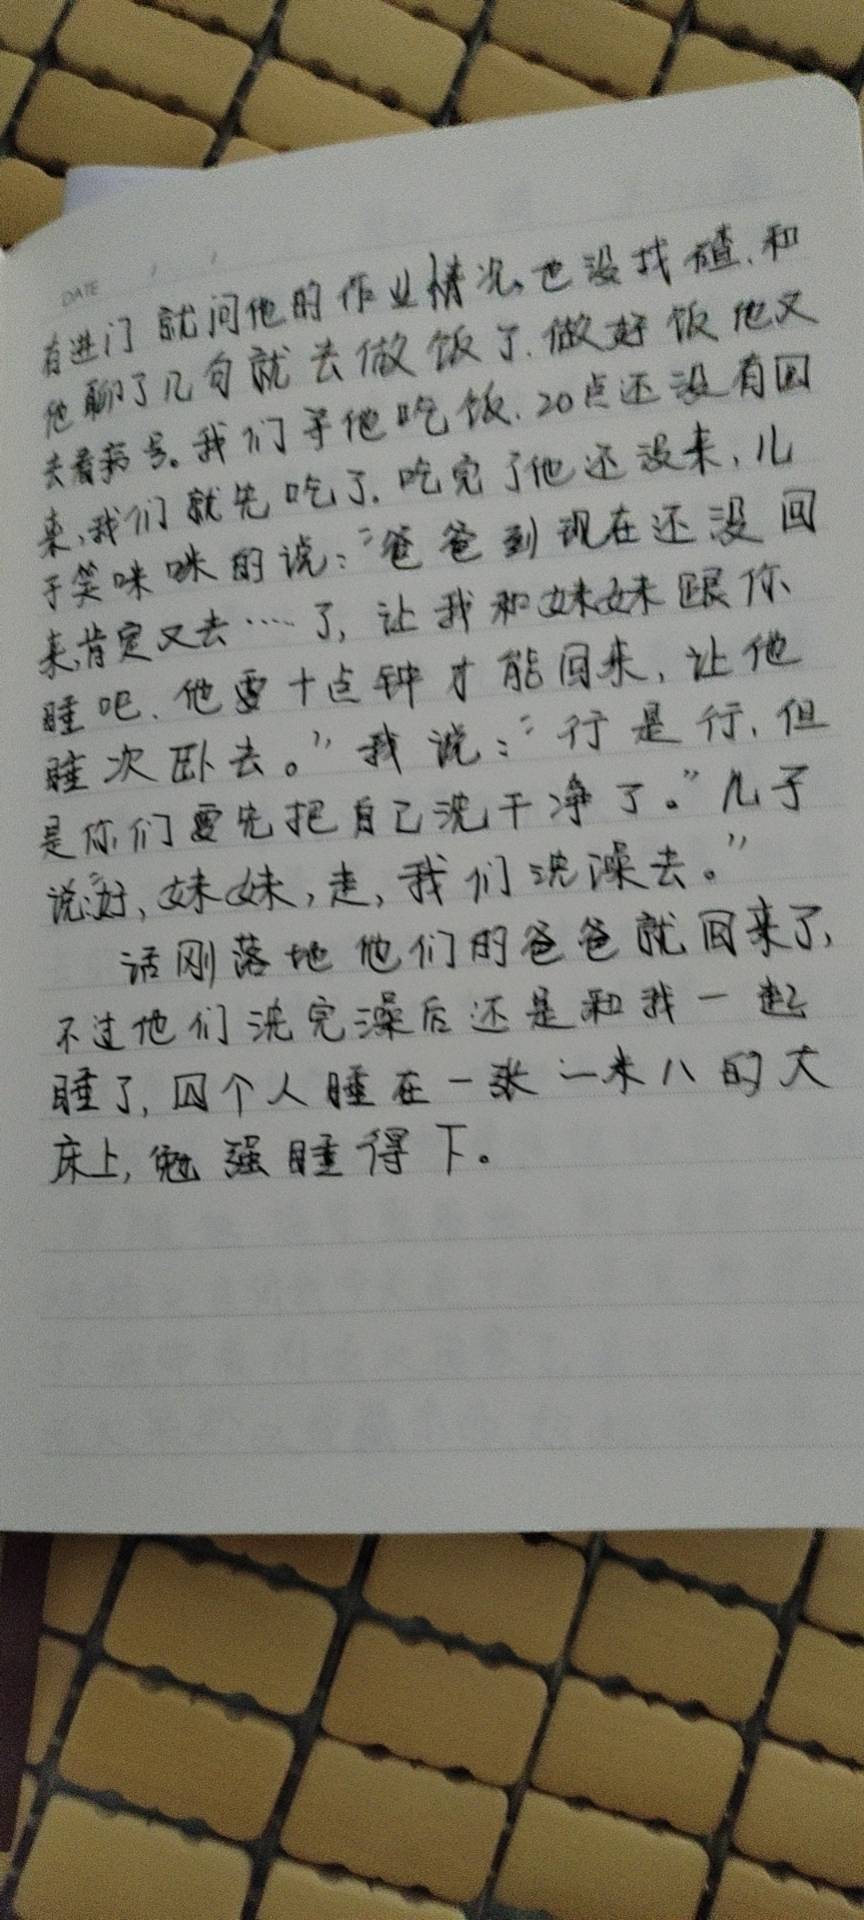 DATE / /
有进门就问他的作业情况,也没找碴、和
他聊了几句就去做饭了.做好饭他又
去看药号。我们等他吃饭、20点还没有回
来,我们就先吃了.吃完了他还没来,儿
子笑咪咪的说:“爸爸到现在还没回
来,肯定又去……了,让我和妹妹跟你
睡吧、他要十点钟才能回来,让他
睡次卧去。”我说:“行是行,但
是你们要先把自己洗干净了。”儿子
说:“好,妹妹,走,我们洗澡去。”
话刚落地他们的爸爸就回来了,
不过他们洗完澡后还是和我一起
睡了,四个人睡在一张一米八的大
床上,勉强睡得下。